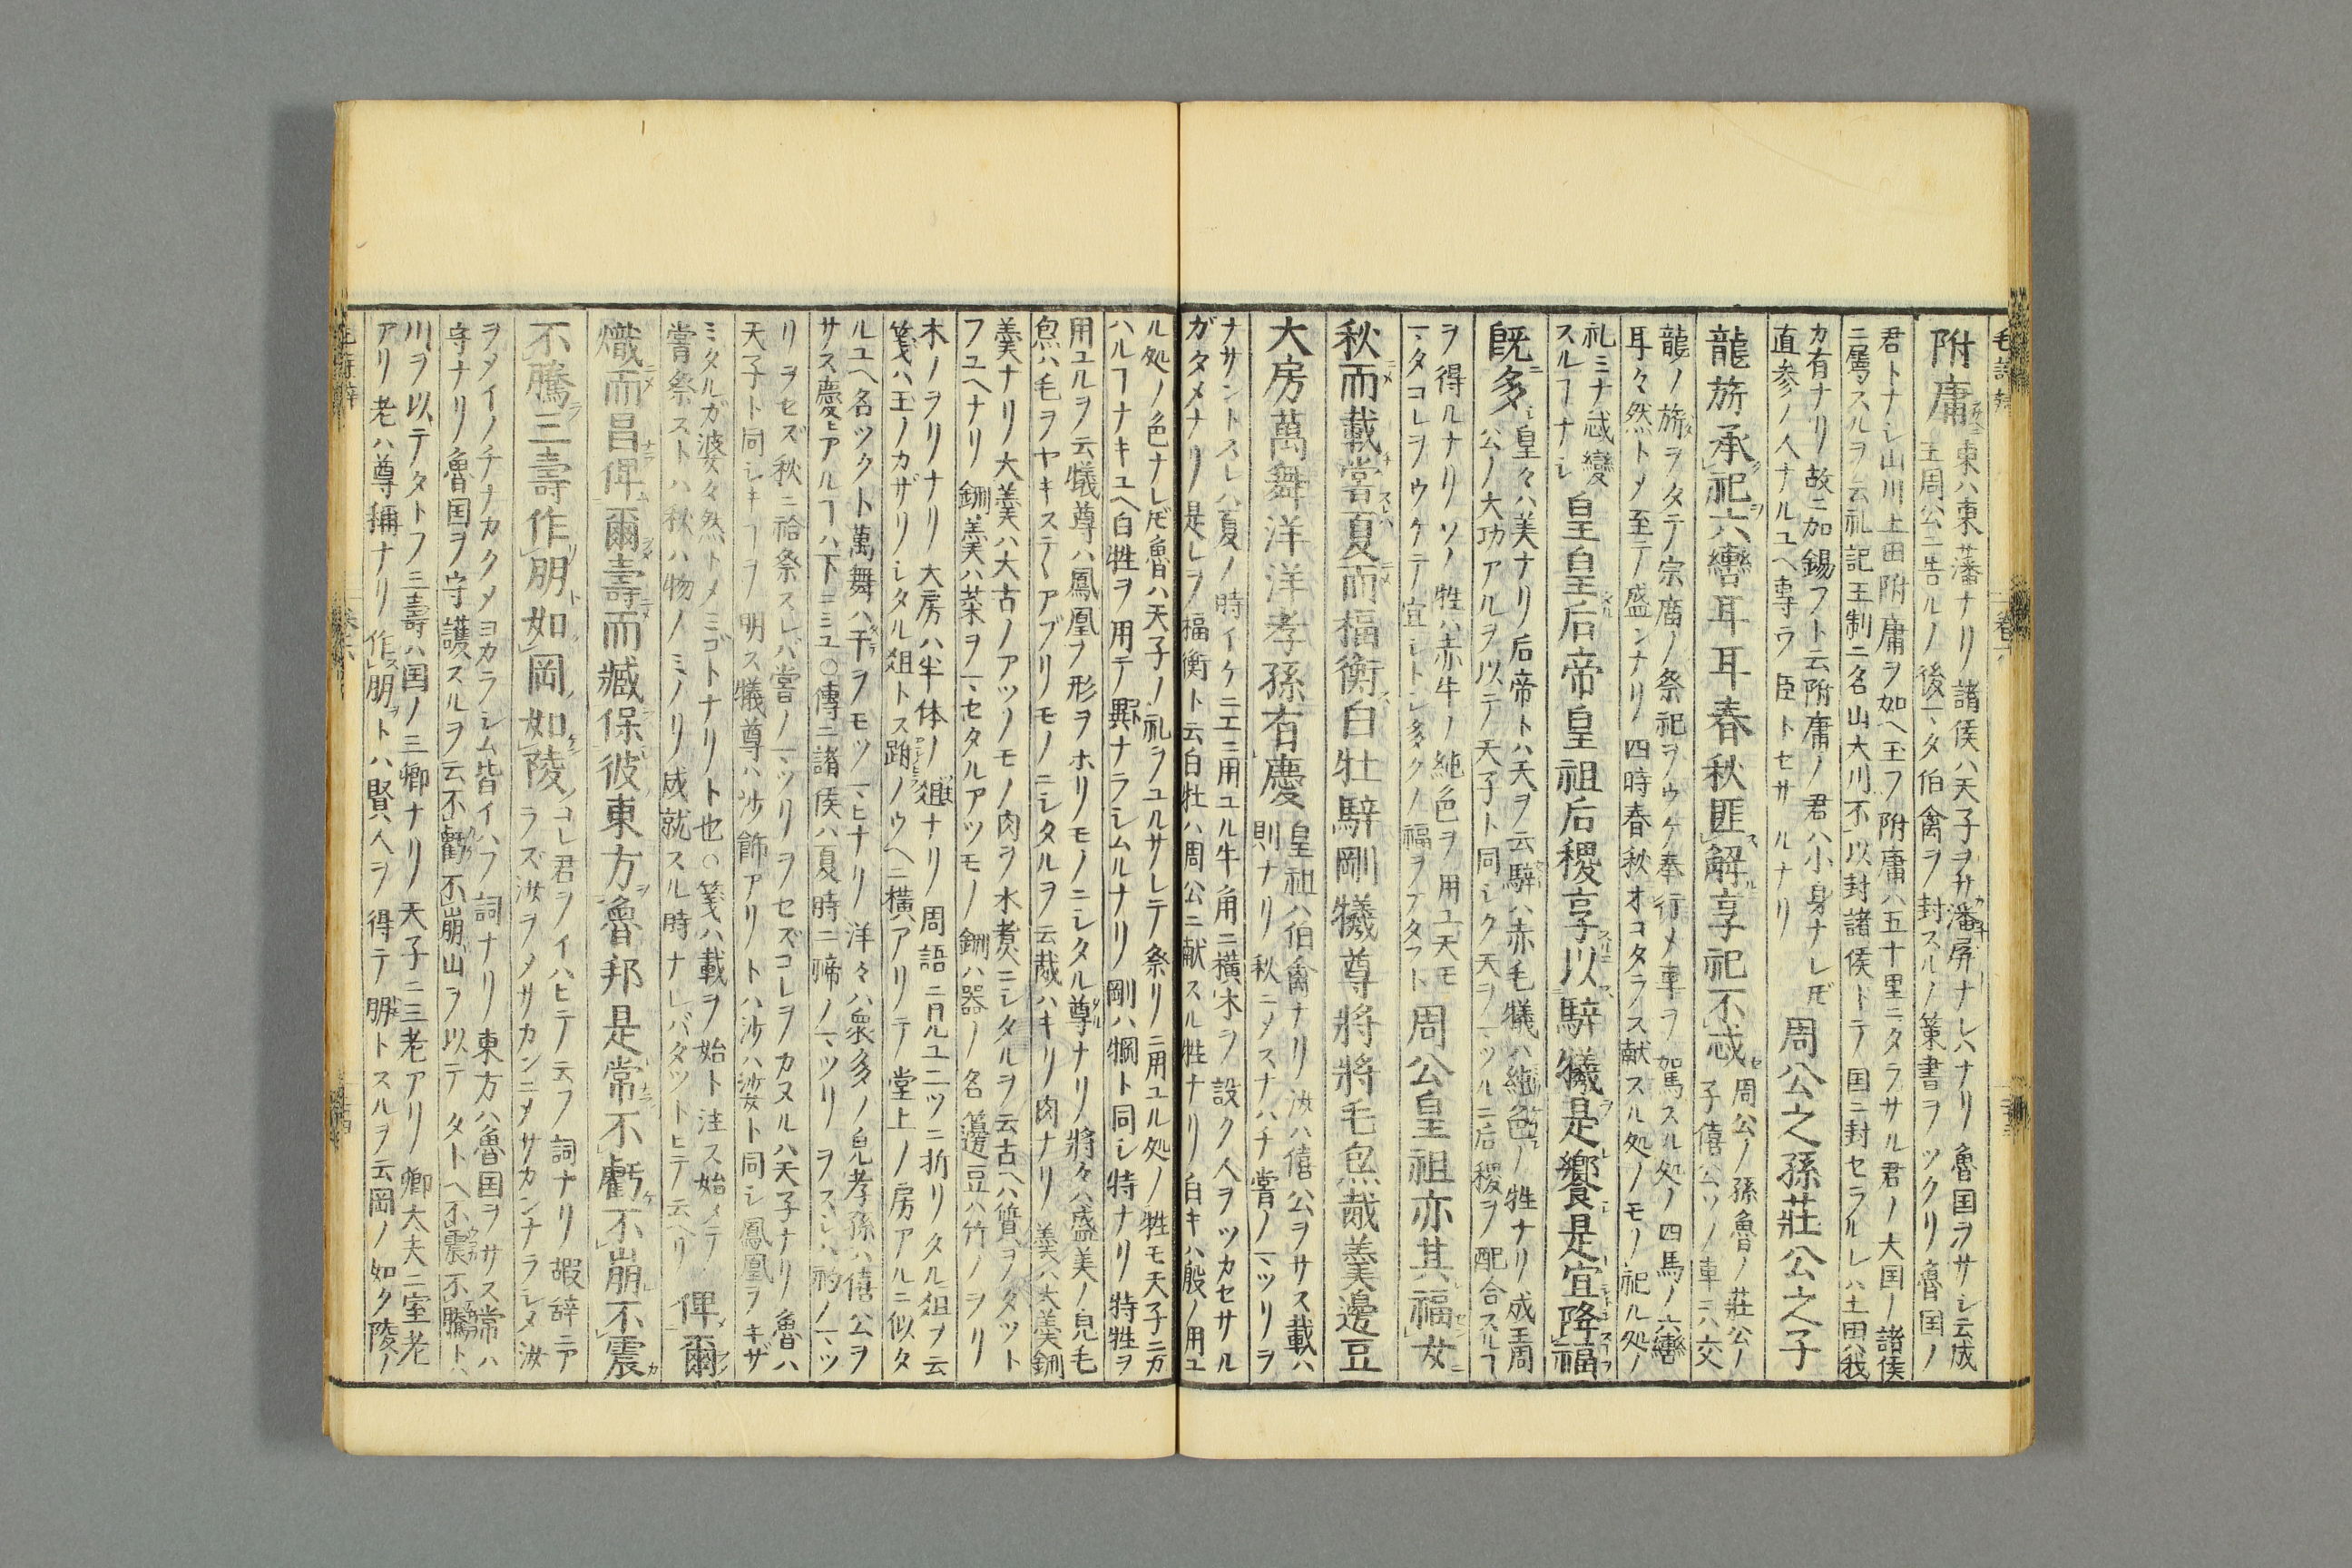 附庸 東ハ東藩ナリ諸侯ハ天子ヲサ潘屏ナレハナリ魯国ヲサシ云成
王周公ニ告ルノ後マタ伯禽ヲ封スルノ策書ヲツクリ魯国ノ
君トナシ山川土田附庸ヲ如ヘ玉フ附庸ハ五十里ニタラサル君ノ大国ノ諸侯
ニ屬スルヲ云礼記王制ニ名山大川不以封諸侯トテ国ニ封セラルレハ土田ハ我
カ有ナリ故ニ加錫フト云附庸ノ君ハ小身ナレ𪜈
直参ノ人ナルユヘ専ラ臣トセサルナリ
周公之孫莊公之子
龍旂承祀六轡耳耳春秋匪解享祀不忒
周公ノ孫魯ノ莊公ノ
子僖公ソノ車ニハ交
龍ノ旂ヲタテ宗庿ノ祭祀ヲウケ奉行メ車ヲ駕スル処ノ四馬ノ六轡
耳々然トメ至テ盛ンナリ四時春秋オコタラス献スル処ノモノ祀ル処ノ
礼ミナ忒變
スルヿナシ
皇皇后帝皇祖后稷享以騂犧是饗是宜降福
既多
皇々ハ美ナリ后帝トハ天ヲ云騂ハ赤毛犧ハ純色ノ牲ナリ成王周
公ノ大功アルヲ以ニテ天子ト同シク天ヲマツルニ后稷ヲ配合スルヿ
ヲ得ルナリソノ牲ハ赤牛ノ純色ヲ用ユ天モ
マタコレヲウケテ宜シトシ多クノ福ヲアタフト
周公皇祖亦其福女
秋而載嘗夏而福衡白牡騂剛犧尊將將毛炰胾羹籩豆
大房萬舞洋洋孝孫有慶
皇祖ハ伯禽ナリ汝ハ僖公ヲサス載ハ
則ナリ秋ニメスナハチ嘗ノマツリヲ
ナサントスレハ夏ノ時イケニエニ用ユル牛角ニ横木ヲ設ク人ヲツカセサル
ガタメナリ是レヲ福衡ト云白牡ハ周公ニ献スル牲ナリ白キハ殷ノ用ユ
ル処ノ色ナレ𪜈魯ハ天子ノ礼ヲユルサレテ祭リニ用ユル処ノ牲モ天子ニカ
ハルヿナキユヘ白牲ヲ用テ異ナラシムルナリ剛ハ犅ト同シ特ナリ特牲ヲ
用ユルヲ云犧尊ハ鳳凰ヲ形ヲホリモノニシタル尊ナリ將々ハ盛美ノ皃毛
炰ハ毛ヲヤキステヽアブリモノニシタルヲ云胾ハキリ肉ナリ羹ハ大羹鉶
羹ナリ大羹ハ大古ノアツノモノ肉ヲ水煮ニシタルヲ云古ヘハ質ヲタツト
フユヘナリ鉶羹ハ菜ヲマセタルアツモノ鉶ハ器ノ名籩豆ハ竹ノヲリ
木ノヲリナリ大房ハ半体ノ俎ナリ周語ニ凡ユニツニ折リタル俎ヲ云
箋ハ玉ノカザリシタル俎トス跗ノウヘニ横アリテ堂上ノ房アルニ似タ
ルユヘ名ツクト萬舞ハ干ヲモツマヒナリ洋々ハ衆多ノ皃孝孫ハ僖公ヲ
サス慶ヒアルヿハ下ニミユ○傳ニ諸侯ハ夏時ニ禘ノマツリヲスレハ礿ノマツ
リヲセズ秋ニ祫祭スレバ嘗ノマツリヲセズコレヲカヌルハ天子ナリ魯ハ
天子ト同シキヿヲ明ス犧尊ハ沙飾アリトハ沙ハ娑ト同シ鳳凰ヲキザ
ミタルガ婆々然トメミゴトナリト也○箋ハ載ヲ始ト注ス始メテ
嘗祭ストハ秋ハ物ノミノリ成就スル時ナレバタツトヒテ云ヘリ
俾爾
熾而昌俾爾壽而臧保彼東方魯邦是常不虧不崩不震
不騰三壽作朋如岡如陵
コレ君ヲノイハヒテ云フ詞ナリ嘏辞ニア
ラズ汝ヲメサカンニメサカンナラシメ汝
ヲメイノチナカクメヨカラシム皆イハフ詞ナリ東方ハ魯国ヲサス常ハ
守ナリ魯国ヲ守護スルヲ云不虧不崩山ヲ以テタトヘ不震不騰トハ
川ヲ以テタトフ三壽ハ国ノ三卿ナリ天子ニ三老アリ卿大夫ニ室老
アリ老ハ尊稱ナリ作朋トハ賢人ヲ得テ朋トスルヲ云岡ノ如ク陵ノ